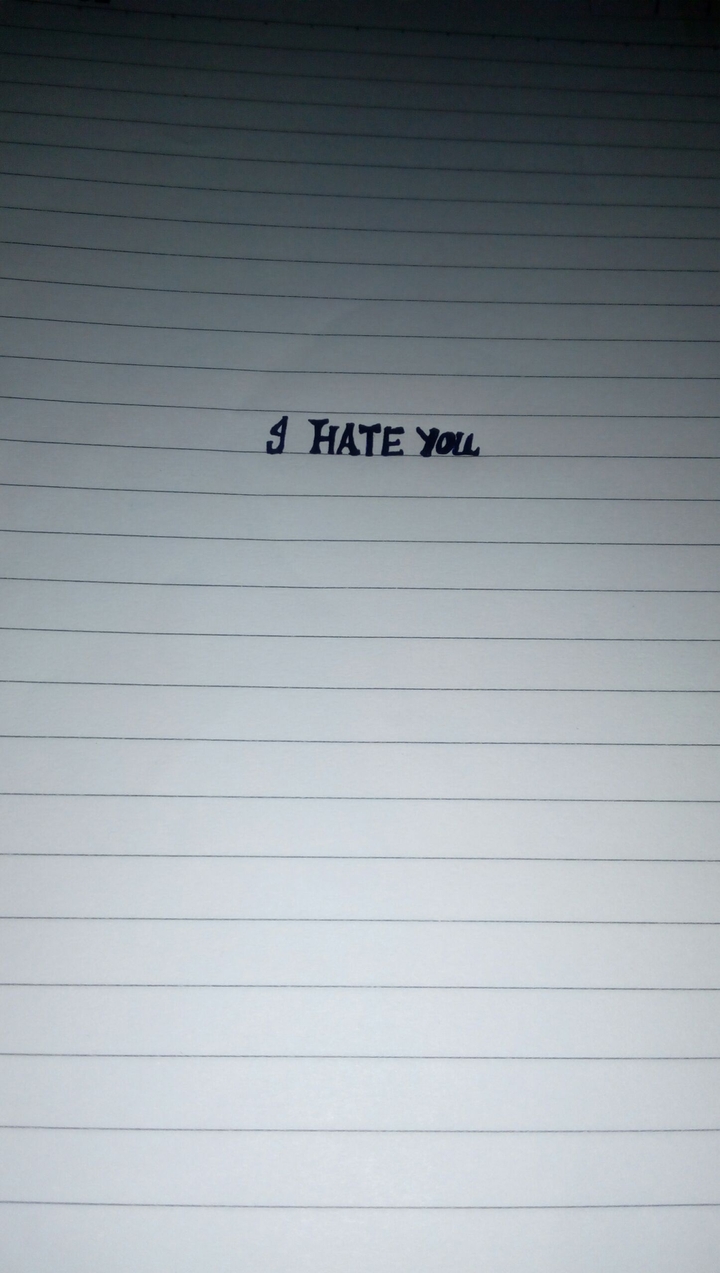 I HATE YOU